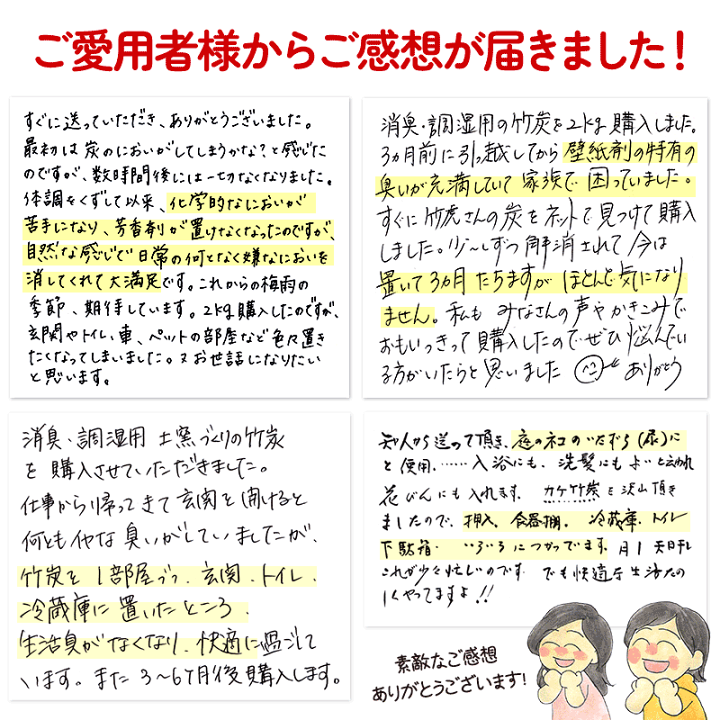 ご愛用者様からご感想が届きました！
すぐに送っていただき、ありがとうございました。
最初は炭のにおいがしてしまうかな？と感じた
のですが、数時間後には一切なくなりました。
体調をくずして以来、化学的なにおいが
苦手になり、芳香剤が置けなくなったのですが、
自然な感じで日常の何となく嫌なにおいを
消してくれて大満足です。これからの梅雨の
季節、期待しています。2kg購入したのですが、
玄関やトイレ、車、ペットの部屋など色々置き
たくなってしまいました。又お世話になりたい
と思います。
消臭・調湿用の竹炭を2kg購入しました。
3ヵ月前に引っ越してから壁紙剤の特有の
臭いが充満していて家族で困っていました。
すぐに竹虎さんの炭をネットで見つけて購入
しました。少～しずつ解消されて今は
置いて3ヵ月たちますがほとんど気になり
ません。私もみなさんの声やかきこみで
おもいっきって購入したのでぜひ悩んでい
る方がいたらと思いました ありがとう
消臭・調湿用 土窯づくりの竹炭
を購入させていただきました。
仕事から帰ってきて玄関を開けると
何ともイヤな臭いがしていましたが、
竹炭を1部屋づつ、玄関、トイレ、
冷蔵庫に置いたところ、
生活臭がなくなり、快適に過ごして
います。また3～6ヶ月後購入します。
知人から送って頂き、庭のネコのいたずら(尿)に
と使用、……入浴にも、洗髪にもよいと云われ
花びんにも入れます。カケ竹炭を沢山頂き
ましたので、押入、食器棚、冷蔵庫、トイレ
下駄箱、いろいろにつかってます、月1天日干し
これが少々忙しいのです でも快適な生活の
やってますよ!!
素敵なご感想
ありがとうございます！